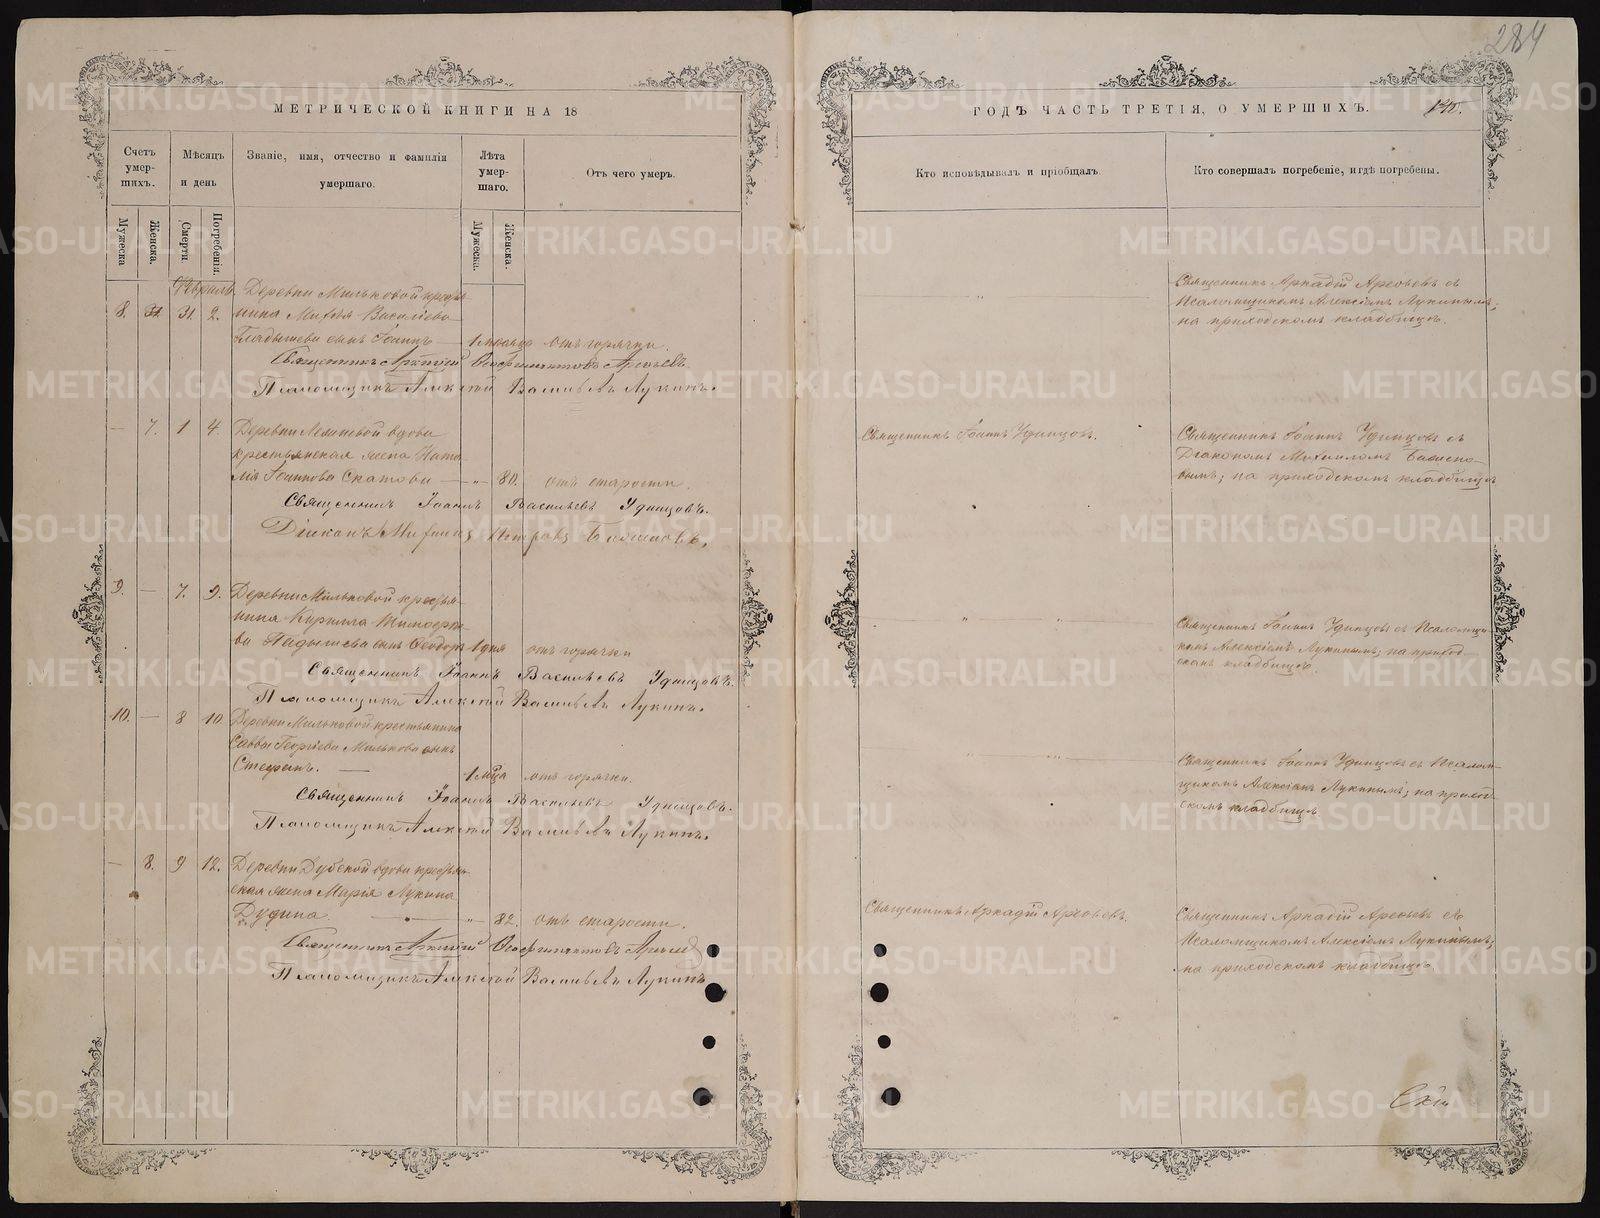 284
МЕТРИЧЕСКОЙ КНИГИ НА 18
ГОДЪ ЧАСТЬ ТРЕТІЯ, О УМЕРШИХЪ.
140.
Счетъ умер-шихъ.
Мѣсяцъ и день
Званіе, имя, отчество и фамилія умершаго.
Лѣта умер-шаго.
Отъ чего умеръ.
Кто исповѣдывалъ и пріобщалъ.
Кто совершалъ погребеніе, и гдѣ погребены.
Мужеска
Женска.
Смерти.
Погребенія.
Мужеска.
Женска.
Февраль
Деревни Мильковой кресть-
8. 31. 2. янина Василіева
сынъ Іоаннъ — 1 отъ горячки.
Священникъ Аркадій Арефьевъ съ
Псаломщикомъ Алексіемъ Лукинымъ;
на приходскомъ кладбищѣ.
Священникъ Аркадій Арефьевъ.
Псаломщикъ Алексій Васильевъ Лукинъ.
— 7. 1 4. Деревни вдова
крестьянская жена Ната-
лія Іоаннова Скатова — „ 80. отъ старости.
Священникъ Іоаннъ Удинцовъ.
Священникъ Іоаннъ Удинцовъ съ
Діакономъ Михаиломъ
на приходскомъ кладбищѣ
Священникъ Іоаннъ Васильевъ Удинцовъ.
Діаконъ Михаилъ Петровъ
9. — 7. 9. Деревни Мильковой кресть-
янина Кирилла Тимофее-
ва сынъ Феодоръ 1 дня отъ горячки
Священникъ Іоаннъ Удинцовъ съ Псаломщи-
комъ Алексіемъ Лукинымъ; на приход-
скомъ кладбищѣ.
Священникъ Іоаннъ Васильевъ Удинцовъ.
Псаломщикъ Алексій Васильевъ Лукинъ.
10. — 8 10. Деревни Мильковой крестьянина
Саввы Георгіева Милькова сынъ
Стефанъ. — 1 мца отъ горячки.
Священникъ Іоаннъ Удинцовъ съ Псалом-
щикомъ Алексіемъ Лукинымъ; на приход-
скомъ кладбищѣ.
Священникъ Іоаннъ Васильевъ Удинцовъ.
Псаломщикъ Алексій Васильевъ Лукинъ.
— 8. 9 12. Деревни Дубской вдова крестьян-
ская жена Марія Лукина
Дудина. — „ 82. отъ старости.
Священникъ Аркадій Арефьевъ.
Священникъ Аркадій Арефьевъ съ
Псаломщикомъ Алексіемъ Лукинымъ;
на приходскомъ кладбищѣ.
Священникъ Аркадій Арефьевъ
Псаломщикъ Алексій Васильевъ Лукинъ
METRIKI.GASO-URAL.RU